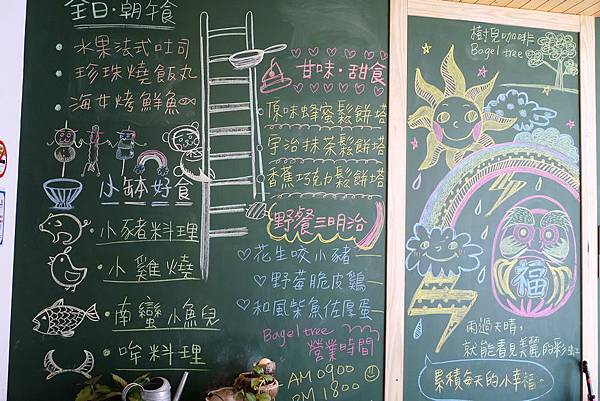 全日·朝午食
水果法式吐司
珍珠燒飯丸
海女烤鮮魚
小缽好食
小豬料理
小雞燒
南蠻小魚兒
哞料理
甘味·甜食
原味蜂蜜鬆餅塔
宇治抹茶鬆餅塔
香蕉巧克力鬆餅塔
野餐三明治
花生咬小豬
野菇脆皮雞
和風柴魚佐厚蛋
Bageltree
營業時間
AM 0900
PM 1800
樹見咖啡
Bagel tree
福
雨過天晴,
就能看見美麗的彩虹
累積每天的小幸福。